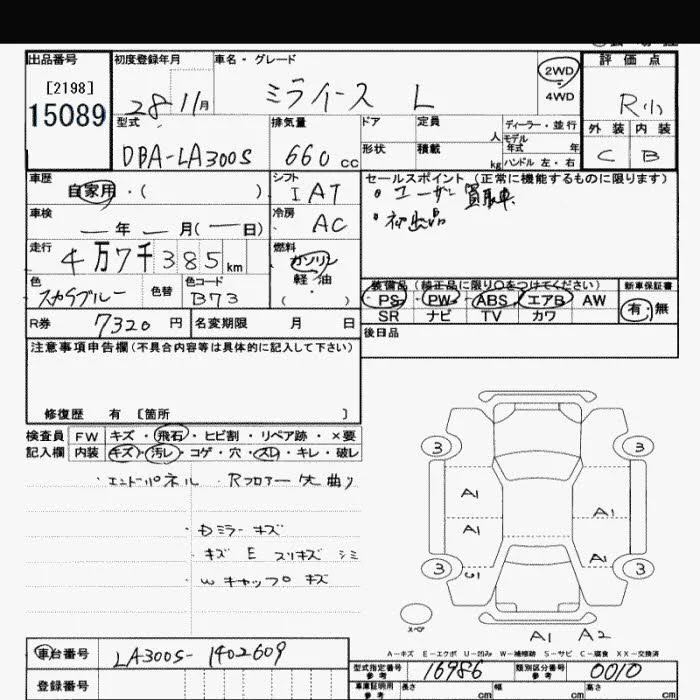 出品番号 初度登録年月 車名・グレード 評価点
[2198] 2WD
15089 28 11月 ミライース L 4WD R小
型式 排気量 ドア 定員 ディーラー・並行 外装 内装
人 モデル年式 年
DBA-LA300S 660cc 形状 積載 kg ハンドル 左・右 C B
車歴 シフト セールスポイント (正常に機能するものに限ります)
自家用・( ) IAT ・ユーザー買取車
車検 冷房 ・初出品
年 月( 日) AC
走行 燃料
4万7千385km ガソリン
軽・油
色 色替 色コード ( ・ ) 装備品 (純正品に限り○をつけてください) 新車保証書
B73 PS PW ABS エアB AW 有・無
SR ナビ TV カワ
R券 7320円 名変期限 月 日 後日品
注意事項申告欄(不具合内容等は具体的に記入して下さい)
修復歴 有 [箇所 ]
検査員 FW キズ・飛石・ヒビ割・リペア跡・×要
記入欄 内装 キズ・汚レ・コゲ・穴・スレ・キレ・破レ
・エンドパネル ・Rフロアー 曲り
・Dミラーキズ
・キズ E スリキズ シミ
・Wキャップ キズ
3 3
A1 A1
A1 A1
3 3
スペア
A1 A2
A-キズ E-エクボ U-凹み W-補修跡 S-サビ C-腐食 XX-交換済
車台番号 LA300S-1402609
型式指定番号 参考 16986 類別区分番号 参考 0010
登録番号 車庫証明用 参考 長さ cm 幅 cm 高さ cm